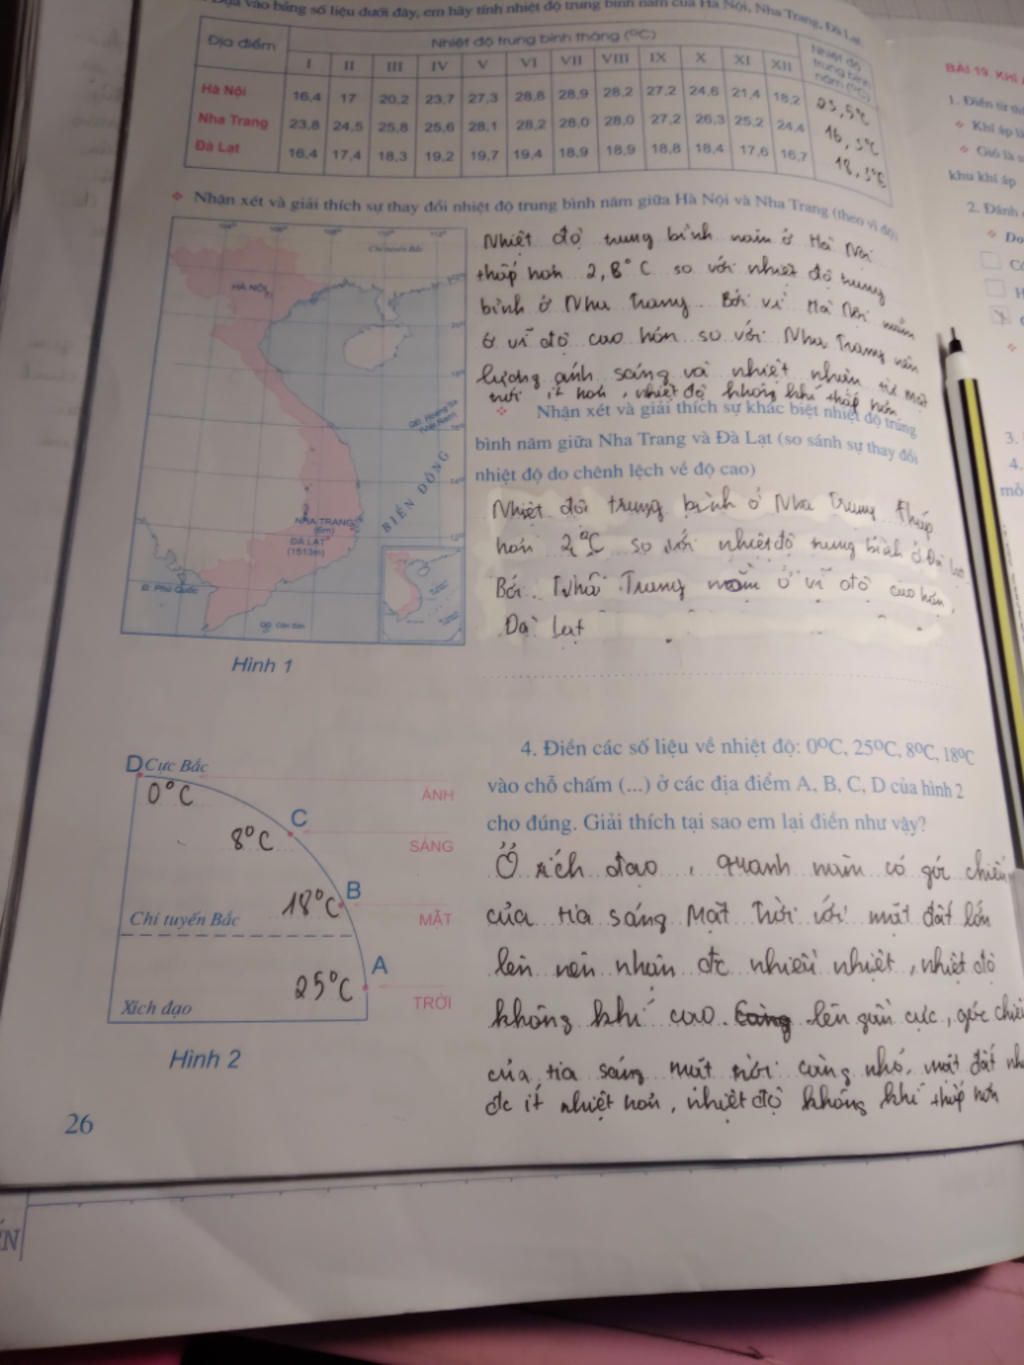 vào bảng số liệu dưới đây, em hãy tính nhiệt độ trung bình năm của Hà Nội, Nha Trang, Đà Lạt.
Địa điểm
Nhiệt độ trung bình tháng (ºC)
Nhiệt độ
trung bình
năm (ºC)
I II III IV V VI VII VIII IX X XI XII
Hà Nội 16,4 17 20,2 23,7 27,3 28,8 28,9 28,2 27,2 24,6 21,4 18,2 23,5ºC
Nha Trang 23,8 24,5 25,8 25,6 28,1 28,2 28,0 28,0 27,2 26,3 25,2 24,4 16,3ºC
Đà Lạt 16,4 17,4 18,3 19,2 19,7 19,4 18,9 18,9 18,8 18,4 17,6 16,7 18,3ºC
Nhận xét và giải thích sự thay đổi nhiệt độ trung bình năm giữa Hà Nội và Nha Trang (theo vĩ độ)
Chí tuyến Bắc
HÀ NỘI
QĐ. Hoàng Sa
(Việt Nam)
BIỂN ĐÔNG
NHA TRANG
(6m)
ĐÀ LẠT
(1513m)
Đ. Phú Quốc
QĐ. Côn Sơn
Hình 1
Nhiệt độ trung bình năm ở Hà Nội
thấp hơn 2,8°C so với nhiệt độ trung
bình ở Nha Trang. Bởi vì Hà Nội nằm
ở vĩ độ cao hơn so với Nha Trang nên
lượng ánh sáng và nhiệt nhận từ mặt
trời ít hơn, nhiệt độ không khí thấp hơn
Nhận xét và giải thích sự khác biệt nhiệt độ trung
bình năm giữa Nha Trang và Đà Lạt (so sánh sự thay đổi
nhiệt độ do chênh lệch về độ cao)
Nhiệt độ trung bình ở Nha Trang thấp
hơn 2°C so với nhiệt độ trung bình ở Đà Lạt
Bởi Nha Trang nằm ở vĩ độ cao hơn
Đà Lạt
D Cực Bắc
0°C
ÁNH
C
8°C
SÁNG
B
18°C
MẶT
Chí tuyến Bắc
A
25°C
TRỜI
Xích đạo
Hình 2
4. Điền các số liệu về nhiệt độ: 0ºC, 25ºC, 8ºC, 18ºC
vào chỗ chấm (...) ở các địa điểm A, B, C, D của hình 2
cho đúng. Giải thích tại sao em lại điền như vậy?
Ở xích đạo, quanh năm có góc chiếu
của tia sáng Mặt Trời với mặt đất lớn
lên nên nhận đc nhiều nhiệt, nhiệt độ
không khí cao. Càng lên gần cực, góc chiếu
của tia sáng mặt trời càng nhỏ, mặt đất
đc ít nhiệt hơn, nhiệt độ không khí thấp hơn
26
BÀI 19. KHÍ
1. Điền từ
Khí áp là
Gió là
khu khí áp
2. Đánh
Do
3.
4.